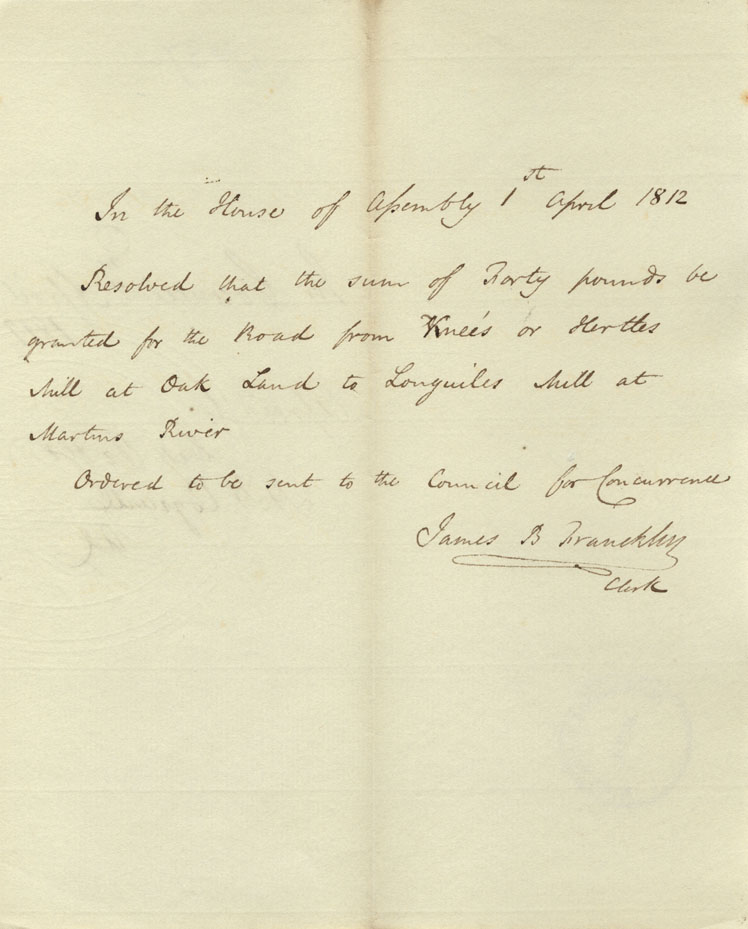 In the House of Assembly 1st April 1812
Resolved that the sum of Forty pounds be
granted for the Road from Knees or Hertles
Mill at Oak Land to Longuiles Mill at
Martins River
Ordered to be sent to the Council for Concurrence
James B Francklin
Clerk